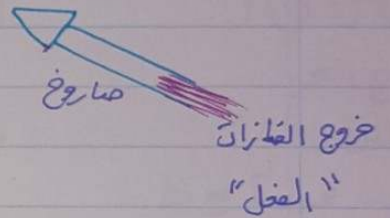 صاروخ
خروج الغازات
"الفعل"